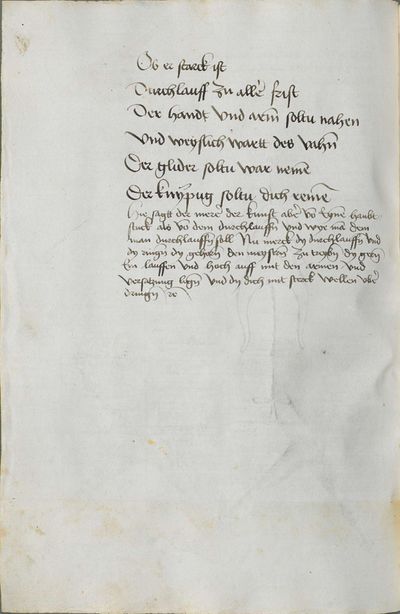 Ob er starck ist
Durchlauff zu alle͂ frist
Der handt vnd arm̄ soltu nahen
Vnd weyslich wartt des vahn̄
Der glider soltu war neme͂
Der knÿpug soltu dich reme͂
Hie sagtt der merē der kunst abe͂ vō eyne͂ haubt
stuck als vō dem durchlauffn̄ vnd wye mā dem
man durchlauffn̄ soll Nu merck dy durchlauffn̄ vnd
dy ringn̄ dy gehorn̄ den meystrn̄ zu treybn̄ dy gern
Ein lauffen vnd hoch auff mit den armen vnd
versatzung lign̄ vnd dy dich mit sterck wellen vbe͂
dringn̄ rc